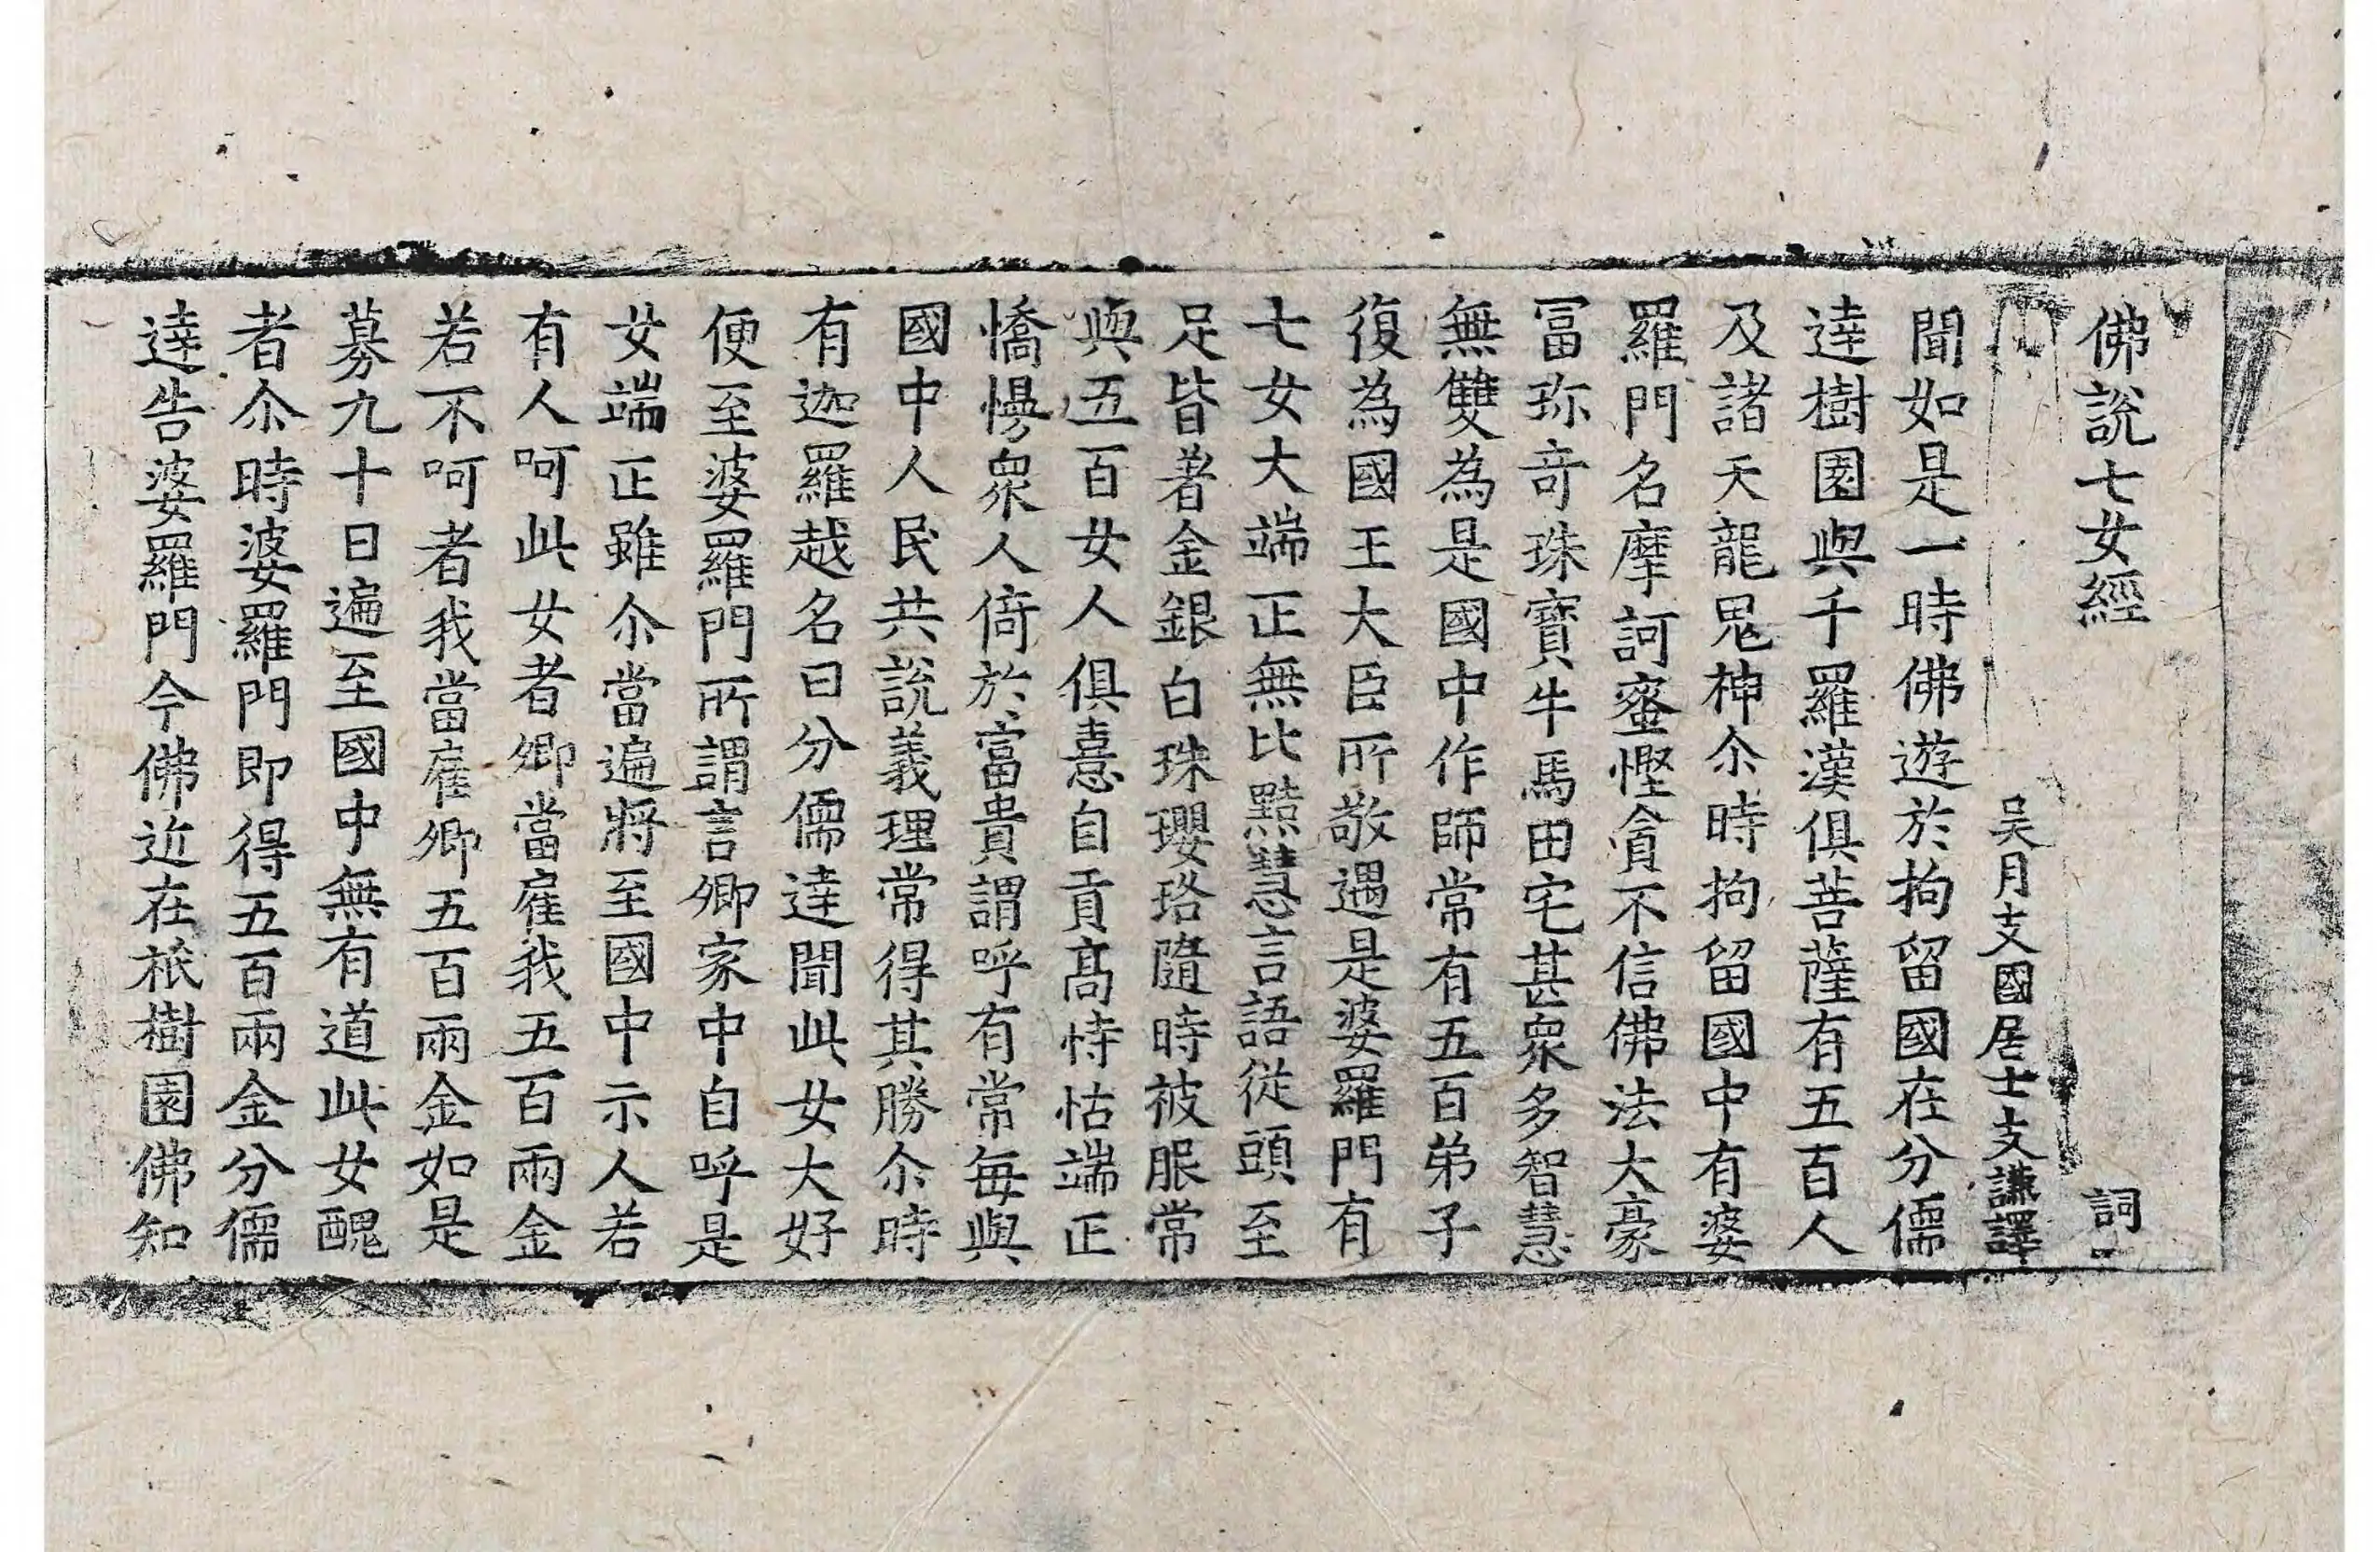 佛說七女經 詞二
吳月支國居士支謙譯
聞如是一時佛遊於拘留國在分儒
達樹園與千羅漢俱菩薩有五百人
及諸天龍鬼神尒時拘留國中有婆
羅門名摩訶蜜慳貪不信佛法大豪
冨珎竒珠寶牛馬田宅甚衆多智慧
無雙為是國中作師常有五百弟子
復為國王大臣所敬遇是婆羅門有
七女大端正無比黠慧言語從頭至
足皆著金銀白珠瓔珞隨時被服常
與五百女人俱憙自貢髙恃怙端正
憍慢衆人倚於富貴謂呼有常每與
國中人民共說義理常得其勝尒時
有迦羅越名曰分儒達聞此女大好
便至婆羅門所謂言卿家中自呼是
女端正雖尒當遍將至國中示人若
有人呵此女者卿當雇我五百兩金
若不呵者我當雇卿五百兩金如是
募九十日遍至國中無有道此女醜
者尒時婆羅門即得五百兩金分儒
達告婆羅門今佛近在祇樹園佛知